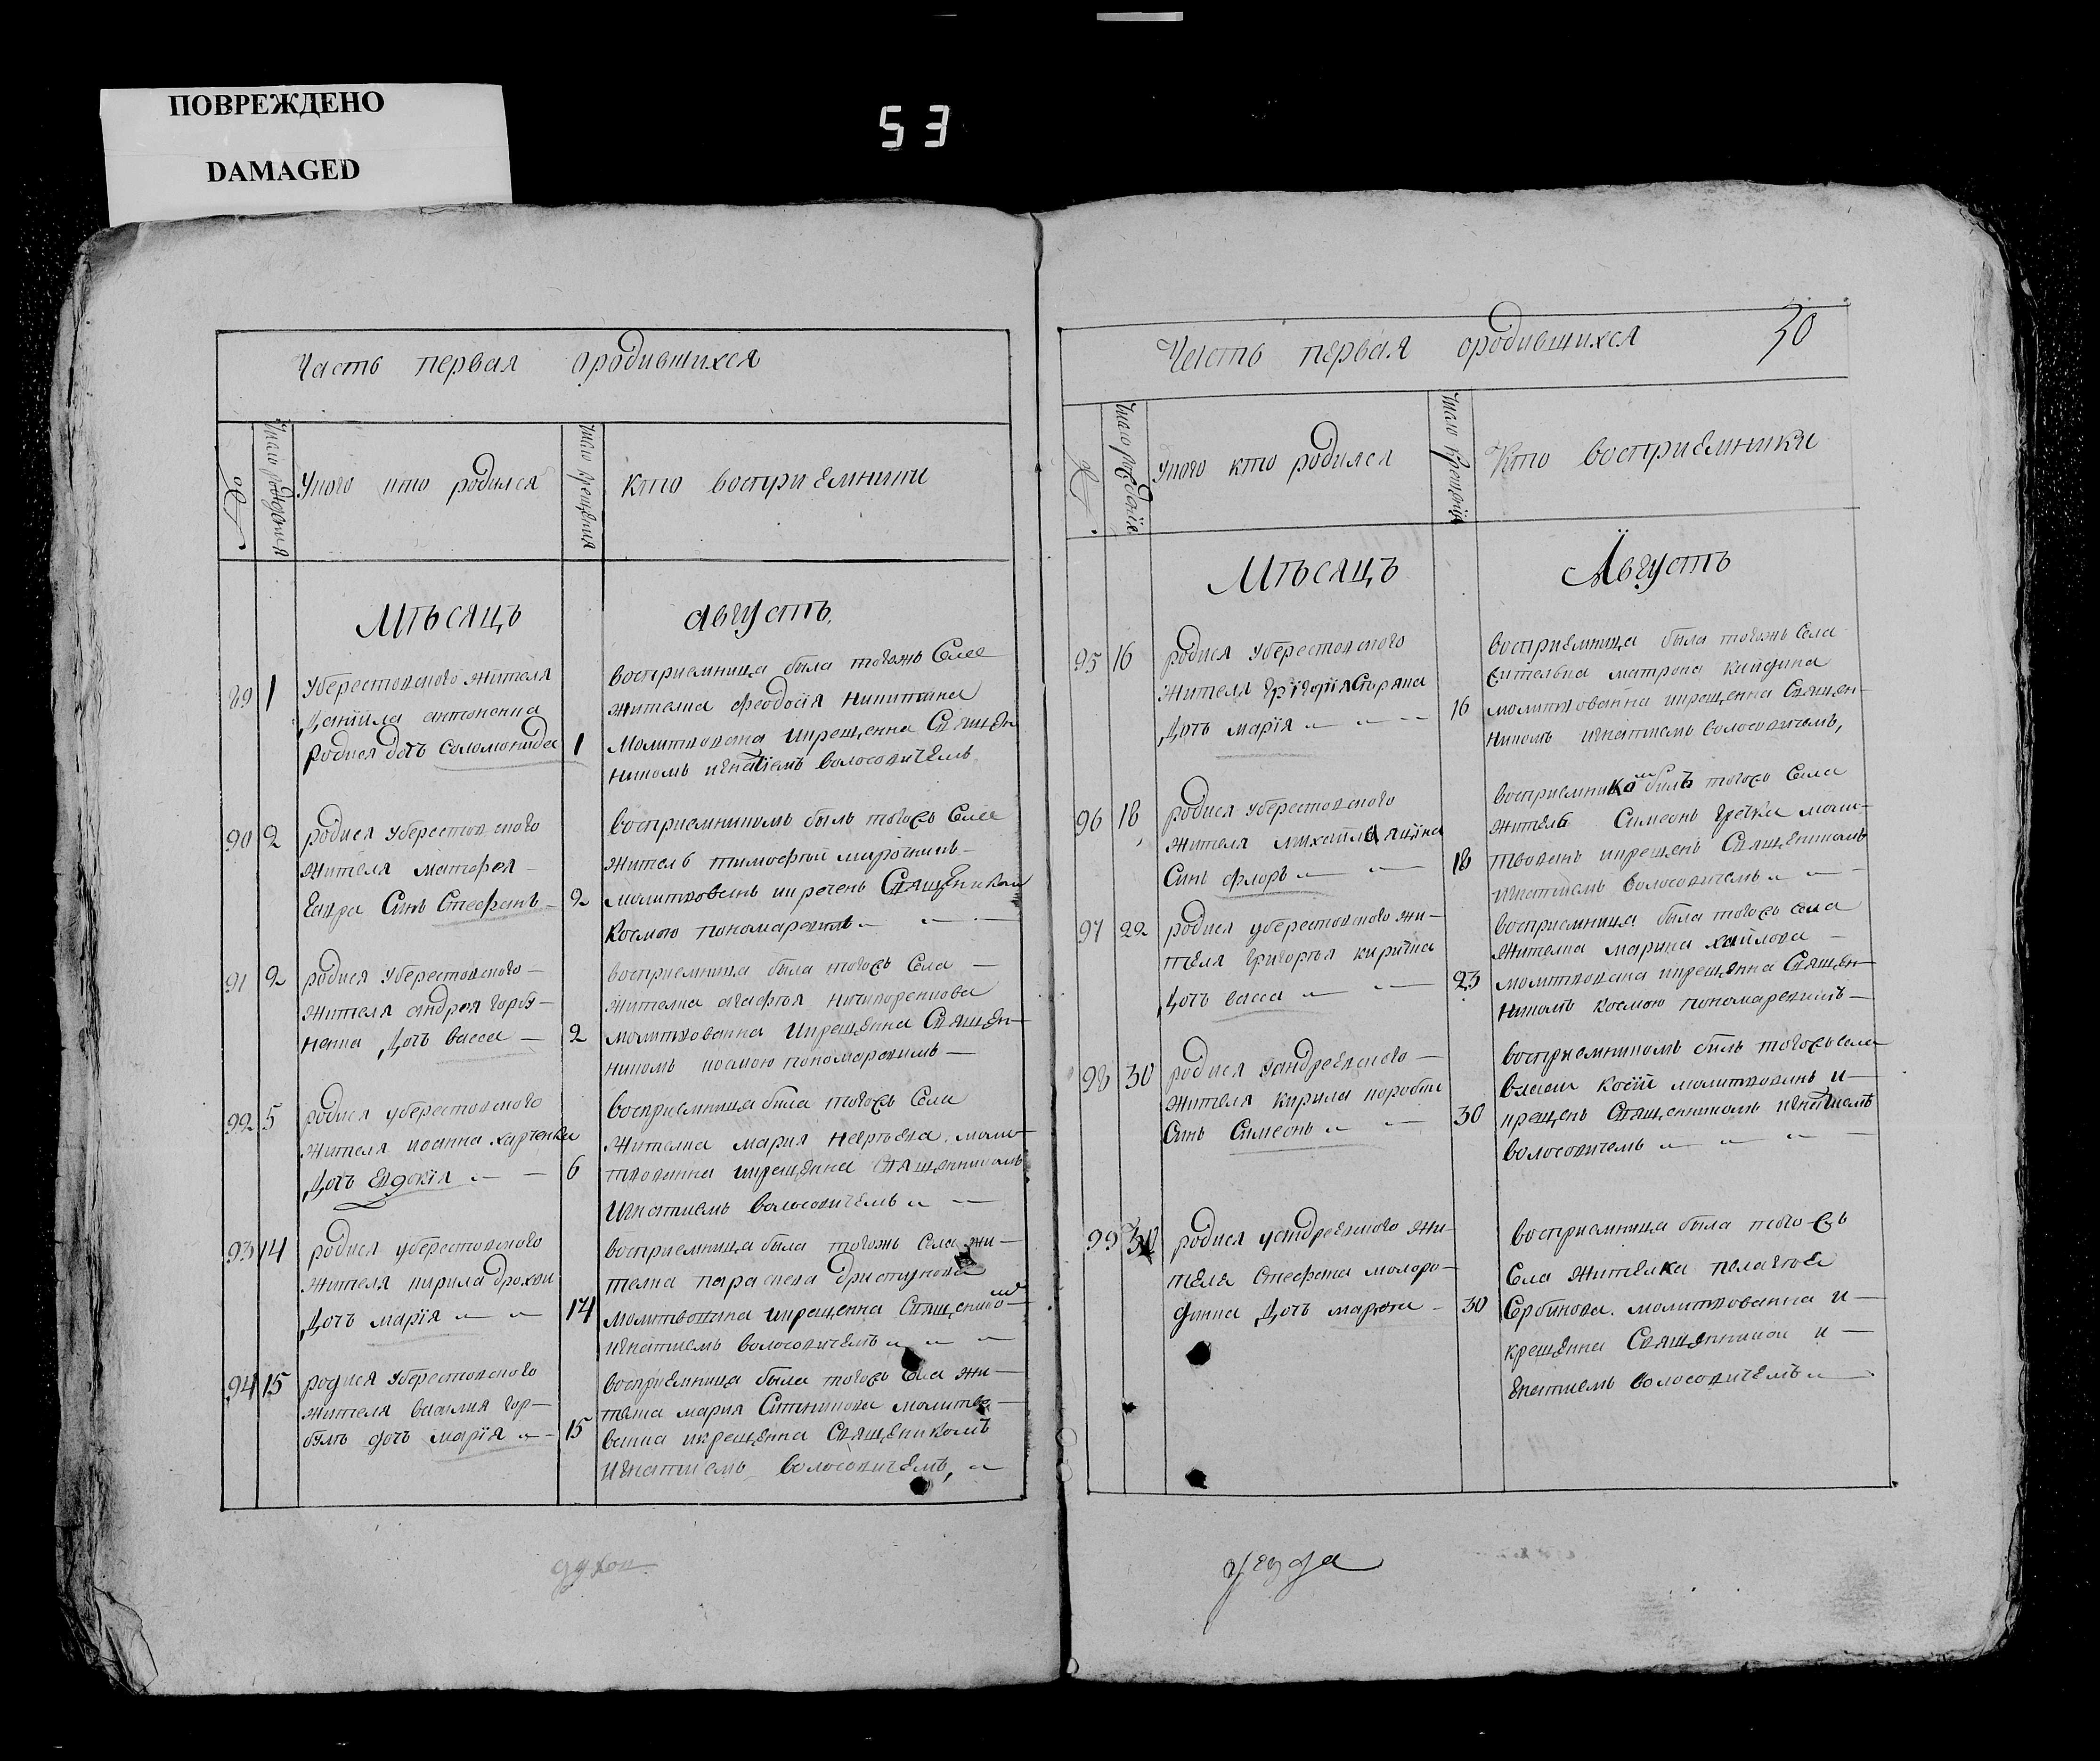 ПОВРЕЖДЕНО
DAMAGED
53
Часть первая ородившихся
№
Число рождения
Уного кто родился
Число крещения
Кто восприемники
Мѣсяцъ августъ
89 1
Уберестовского жителя
Даніила антоненка
родися дочъ соломонида 1
восприемница была тогожъ Села
жителка феодосія никитина
Молитвована икрещенна Священ
никомъ игнатіемъ волосовичемъ
90 2
родися уберестовского
жителя матфея
Синъ Стефанъ 2
восприемникомъ былъ тогожъ Села
житель тимофей
молитвованъ икрещенъ Священиком
Космою пономаревимъ
91 2
родися уберестовского
жителя андрея горб-
ненка Дочъ васса 2
восприемница была тогожъ Села
жителка агафія ничипоренкова
молитвованна икрещенна Священ-
никомъ космою пономаревимъ
92 5
родися уберестовского
жителя иоанна харченка
Дочъ Евдокія 6
восприемница была тогожъ Села
жителка мария моли-
твованна икрещенна Священникомъ
Игнатиемъ волосовичемъ
93 14
родися уберестовского
жителя кирила
Дочъ марія 14
восприемница была тогожъ Села жи-
телка параскева
молитвованна икрещенна Священико-
мъ
игнатиемъ волосовичемъ
94 15
родися уберестовского
жителя василия гор-
дочъ марія 15
восприемница была тогожъ Села жи-
телка мария Ситникова молитво-
ванна икрещенна Священикомъ
Игнатиемъ волосовичемъ,
духов
Честь первая ородившихся 30
№
Число рождения
Уного кто родился
Число крещения
Кто восприемники
Мѣсяцъ Августъ
95 16
родися уберестовского
жителя григорія
Дочъ марія 16
восприемница была тогожъ Села
жителка матрона
молитвованна икрещенна Священ-
никомъ игнатиемъ волосовичемъ,
96 18
родися уберестовского
жителя михаила
Синъ флоръ 18
восприемникомъ билъ тогожъ Села
житель Симеонъ гречка моли-
твованъ икрещенъ Священикомъ
игнатиемъ волосовичемъ
97 22
родися уберестовского жи-
теля григория
Дочъ васса 23
восприемница была тогожъ села
жителка марина
молитвована икрещенна Священ-
никомъ космою пономаревимъ
98 30
родися уандреевского
жителя кирила коробки
Синъ Симеонъ 30
восприемникомъ билъ тогожъ села
власи молитвованъ и-
крещенъ Священникомъ игнатиемъ
волосовичемъ
99 30
родися уандреевского жи-
теля Стефана
Дочъ 30
восприемница была того жъ
Села жителка пелагея
Сербинова молитвованна и-
крещенна Священникомъ и-
гнатиемъ волосовичемъ
уезда